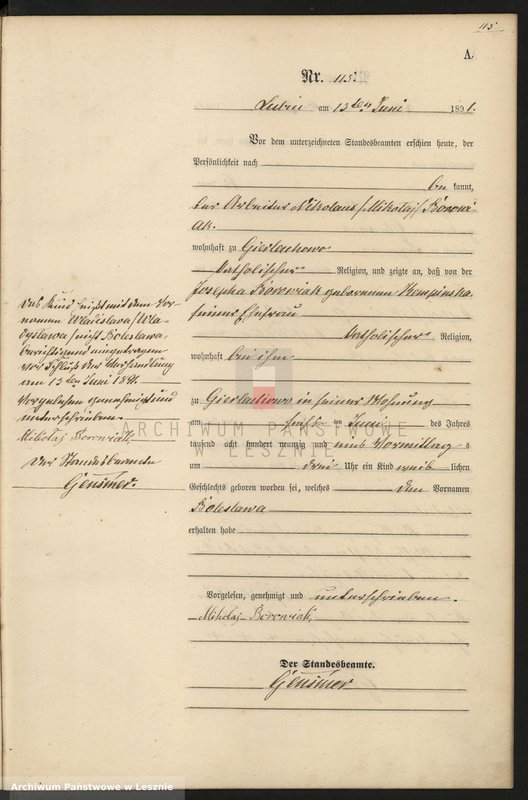 115
A.
Nr. 115.
Lubin am 13ten Juni 1891.
Vor dem unterzeichneten Standesbeamten erschien heute, der
Persönlichkeit nach
be kannt,
der Arbeiter Nikolaus /Mikolaj/ Borowi-
ak.
wohnhaft zu Gierlachowo
katholischer Religion, und zeigte an, daß von der
Josepha Borowiak geborenen Kempinska
seiner Ehefrau
katholischer Religion,
wohnhaft bei ihm
zu Gierlachowo in seiner Wohnung
am des Jahres
tausend acht hundert neunzig und eins Vormittag s
um drei Uhr ein Kind weib lichen
Geschlechts geboren worden sei, welches den Vornamen
Boleslawa
erhalten habe
Vorgelesen, genehmigt und unterschrieben.
Mikołaj Borowiak,
Der Standesbeamte.
Gensmer
Das Kind heißt mit dem Vor-
namen Wladislawa /Wła-
dysława/ nicht Boleslawa,
berichtigend eingetragen
vor Schluß der Verhandlung
am 13ten Juni 1891.
Vorgelesen genehmigt und
unterschrieben
Mikołaj Borowiak
Der Standesbeamte
Gensmer.
ARCHIWUM PAŃSTWOWE
W LESZNIE
Archiwum Państwowe w Lesznie